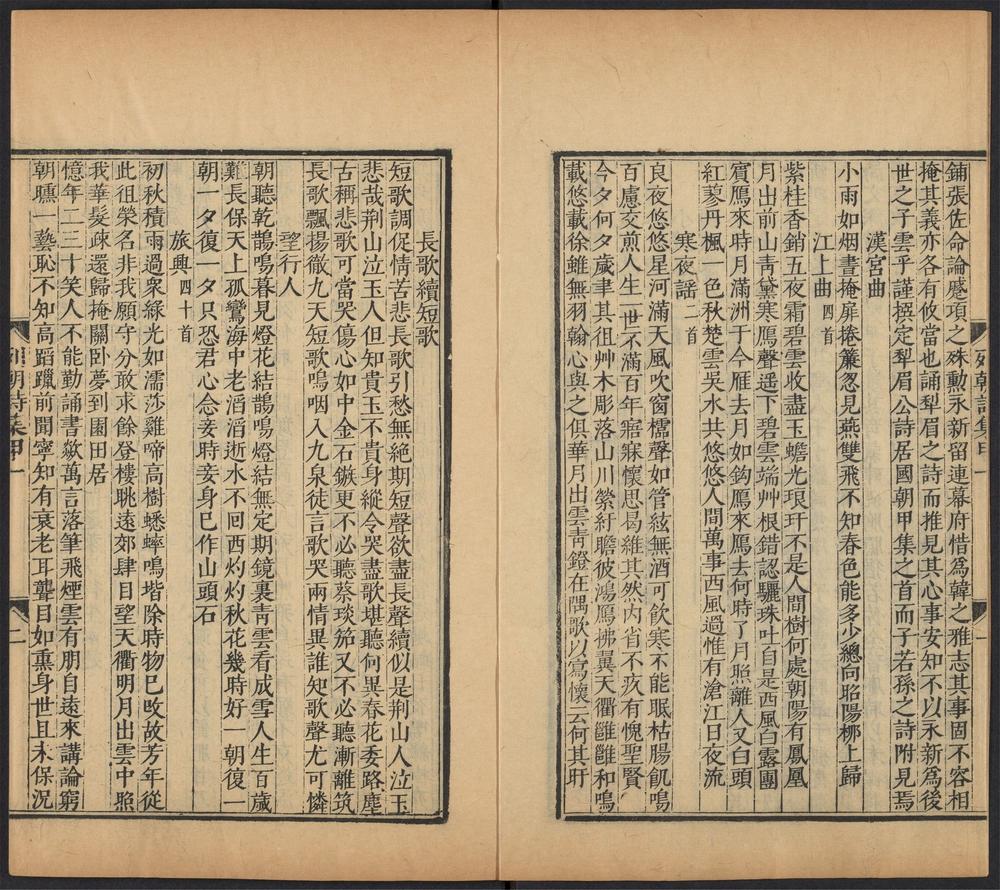 鋪張佐命論蹙項之殊勲永新留連幕府惜爲韓之雅志其事固不容相
掩其義亦各有攸當也誦犁眉之詩而推見其心事安知不以永新爲後
世之子雲乎謹撰定犁眉公詩居國朝甲集之首而子若孫之詩附見焉
漢宮曲
小雨如烟晝掩屛捲簾忽見燕雙飛不知春色能多少總向昭陽栁上歸
江上曲四首
紫桂香銷五夜霜碧雲收盡玉蟾光琅玕不是人間樹何處朝陽有鳳凰
月出前山靑黛寒鴈聲遥下碧雲端艸根錯認驪珠吐自是西風白露團
賓鴈來時月滿洲于今雁去月如鈎鴈來鴈去何時了月照離人又白頭
紅蓼丹楓一色秋楚雲吳水共悠悠人間萬事西風過惟有滄江日夜流
寒夜謡二首
良夜悠悠星河滿天風吹窗櫺聲如管絃無酒可飲寒不能眠枯腸飢鳴
百慮交煎人生一世不滿百年寤寐懷思曷維其然內省不疚有愧聖賢
今夕何夕歲聿其徂艸木彫落山川縈紆瞻彼鴻鴈拂翼天衢雝雝和鳴
載悠載徐雖無羽翰心與之俱華月出雲靑鐙在隅歌以寫懷云何其盱
列朝詩集甲一
一
長歌續短歌
短歌調促情苦悲長歌引愁無絕期短聲欲盡長聲續似是荆山人泣玉
悲哉荆山泣玉人但知貴玉不貴身縱令哭盡歌堪聽何異春花委路塵
古稱悲歌可當哭傷心如中金石鏃更不必聽蔡琰笳又不必聽漸離筑
長歌飄揚徹九天短歌嗚咽入九泉徒言歌哭兩情異誰知歌聲尤可憐
望行人
朝聽乾鵲鳴暮見燈花結鵲鳴燈結無定期鏡裏靑雲看成雪人生百歲
難長保天上孤鸞海中老滔滔逝水不回西灼灼秋花幾時好一朝復一
朝一夕復一夕只恐君心念妾時妾身已作山頭石
旅興四十首
初秋積雨過衆綠光如濡莎雞啼高樹蟋蟀鳴堦除時物已改故芳年從
此徂榮名非我願守分敢求餘登樓眺遠郊肆目望天衢明月出雲中照
我華髮疎還歸掩關卧夢到園田居
憶年二三十笑人不能勤誦書歘萬言落筆飛煙雲有朋自遠來講論窮
朝曛一藝恥不知高蹈躐前聞寧知有衰老耳聾目如熏身世且未保況
列朝詩集甲一
二